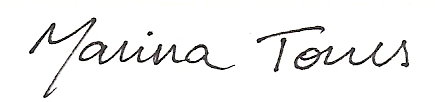 Marina Torres